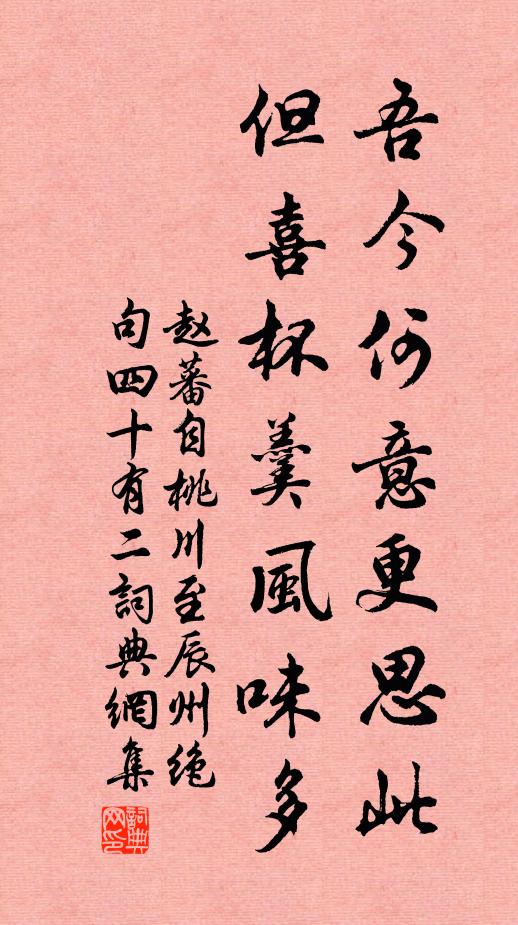 吾今何意更思此
但喜杯羹風味多
赵蕃自桃川至辰州绝
句四十有二詞典網集
詞典网印